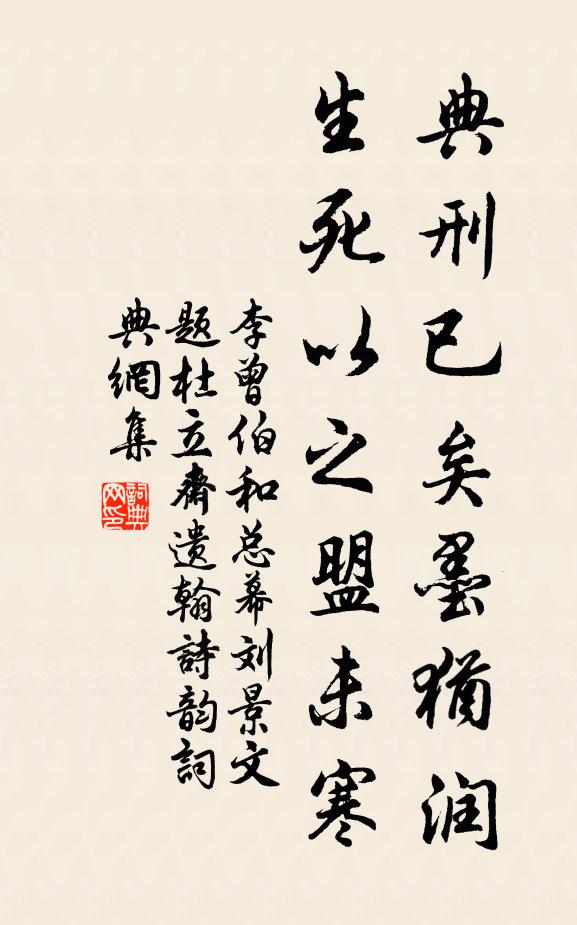 典刑已矣墨犹润
生死以之盟未寒
李曾伯和总幕刘景文
题杜立齋遗翰詩韵詞
典網集
詞典网印